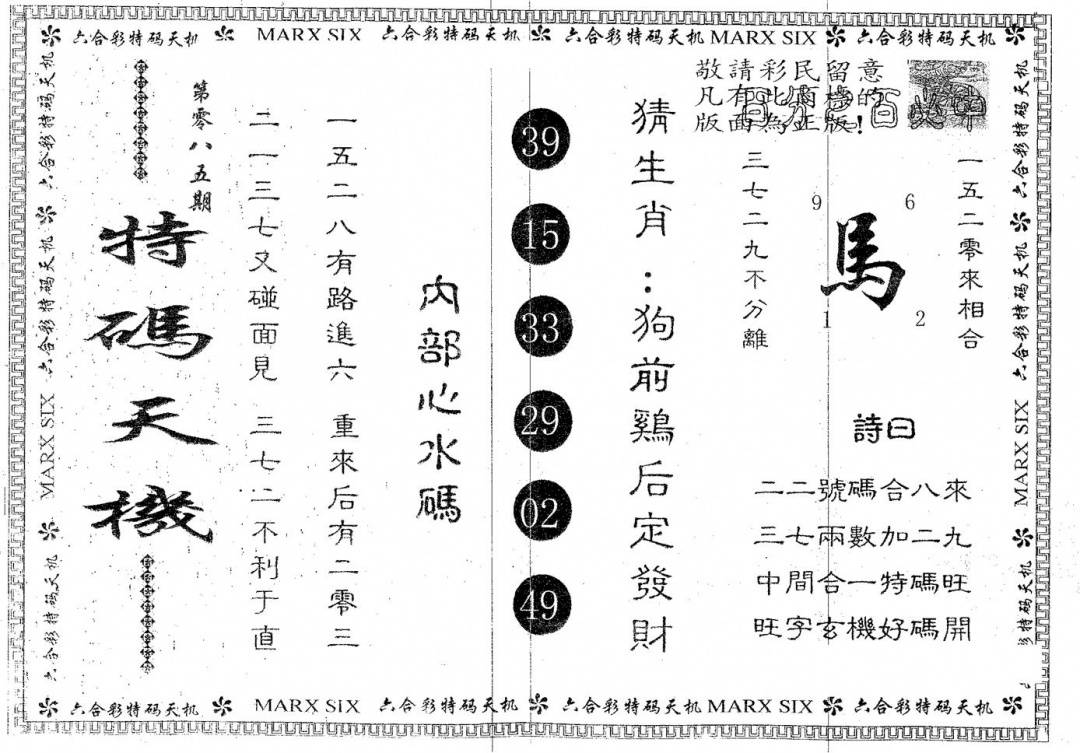 六合彩特码天机 MARX SIX 六合彩特码天机 六合彩特码天机 MARX SIX 六合彩特码天机
敬請彩民留意
凡有此商標的
版面為正版!
第零八五期
特碼天機
二一三七又碰面見 三七二不利于直
一五二八有路進六 重來后有二零三
內部心水碼
39
15
33
29
02
49
猜生肖:狗前鷄后定發財
三七二九不分離
9 6
馬
1 2
一五二零來相合
詩曰
二二號碼合八來
三七兩數加二九
中間合一特碼旺
旺字玄機好碼開
六合彩特码天机 六合彩特码天机 六合彩特码天机 MARX SIX 六合彩特码天机
六合彩特码天机 六合彩特码天机 MARX SIX 彩特码天机
六合彩特码天机 MARX SIX 六合彩特码天机 六合彩特码天机 MARX SIX 六合彩特码天机